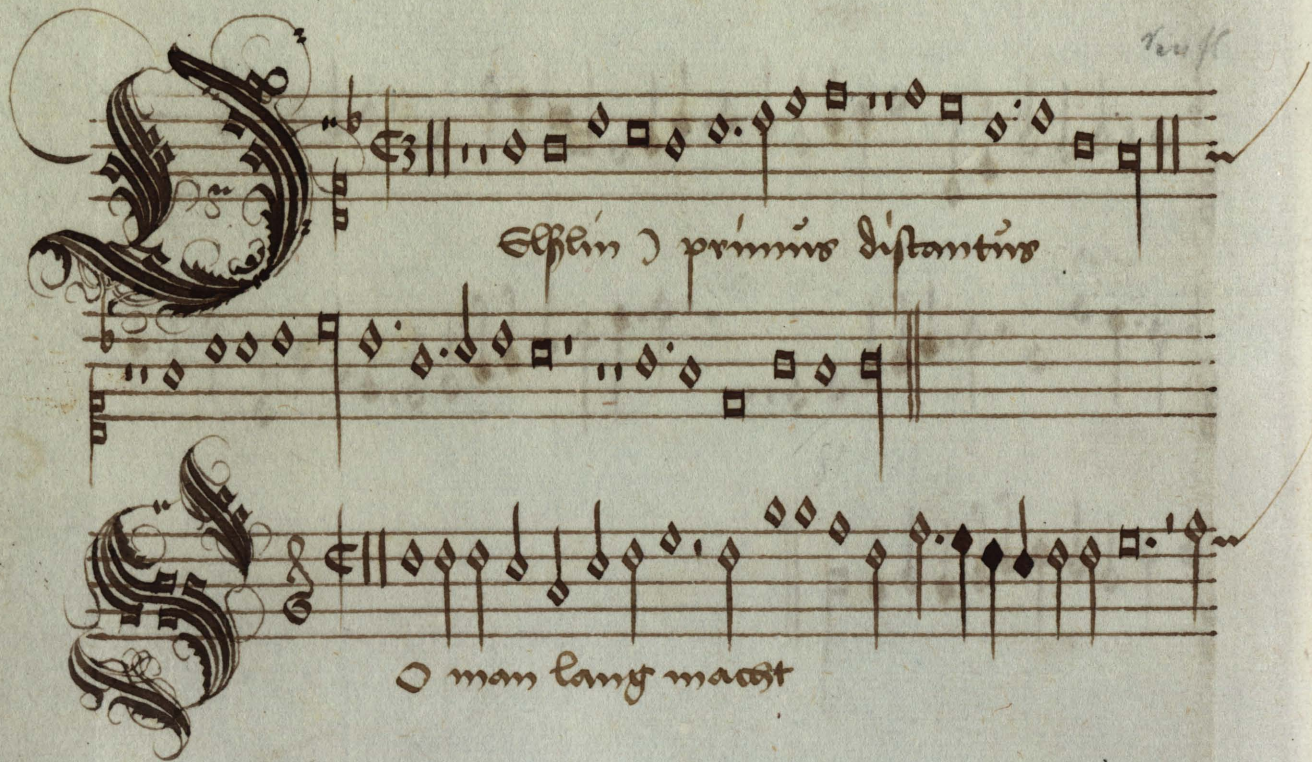 Elßlin ) primus discantus
So man lang macht